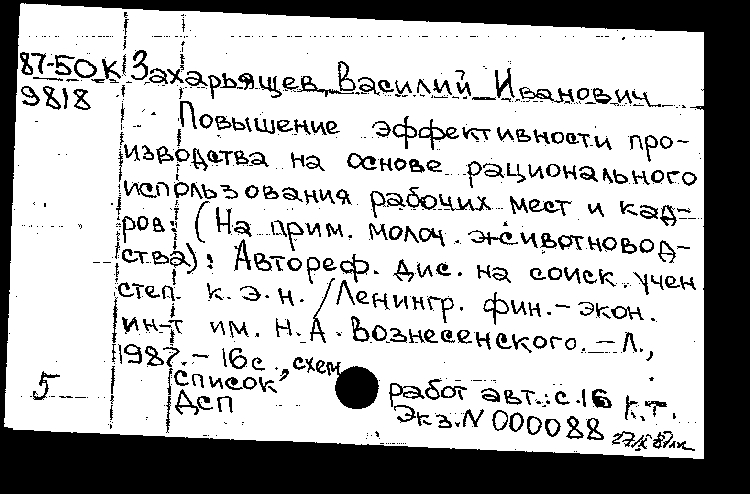 87-5ОК Захарьящев, Василий Иванович
9818
Повышение эффективности про-
изводства на основе рационального
использования рабочих мест и кад-
ров: (На прим. молоч. животновод-
ства): Автореф. дис. на соиск. учен
степ. к.э.н. /Ленингр. фин.-экон.
ин-т им. Н.А. Вознесенского. - Л.,
1987. - 16с., схем
список работ авт.: с.16 к.т.
5 ДСП Экз. N 000088